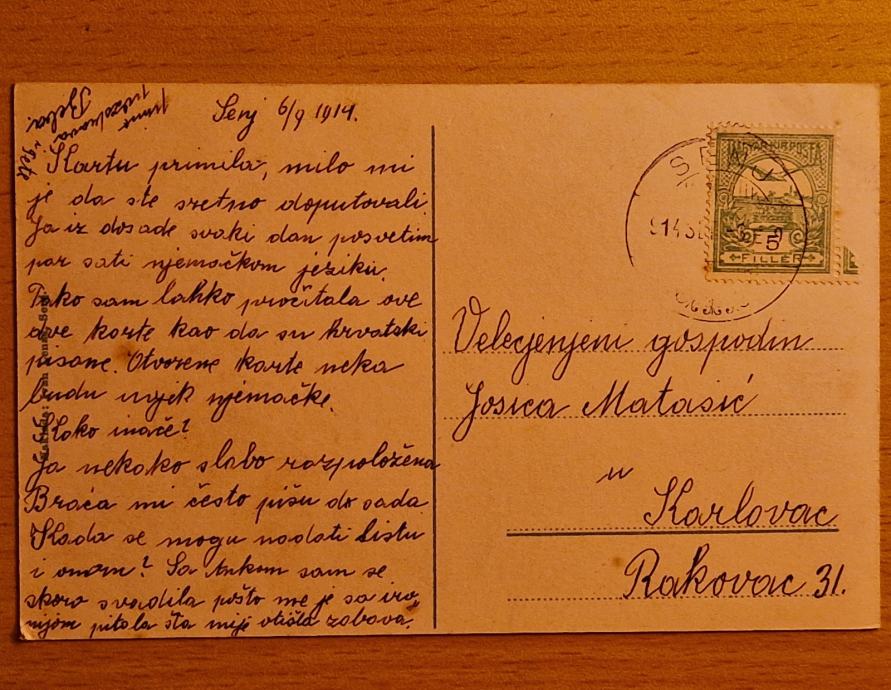 Senj 6/9 1914.
Kartu primila, milo mi
je da ste sretno doputovali
Ja iz dosade svaki dan posvetim
par sati njemačkom jeziku.
Tako sam lahko pročitala ove
dve karte kao da su hrvatski
pisane. Otvorene karte neka
budu uvjek njemačke.
Kako inače?
Ja nekako slabo razpoložena
Braća mi često pišu do sada
Kada se mogu nadati listu
i onom? Sa Ankom sam se
skoro svadila pošto me je sa iro
nijom pitala šta mije otišla zabava.
Velecjenjeni gospodin
Josica Matasić
u
Karlovac
Rakovac 31.
MAGYAR KIR. POSTA
5
FILLÉR